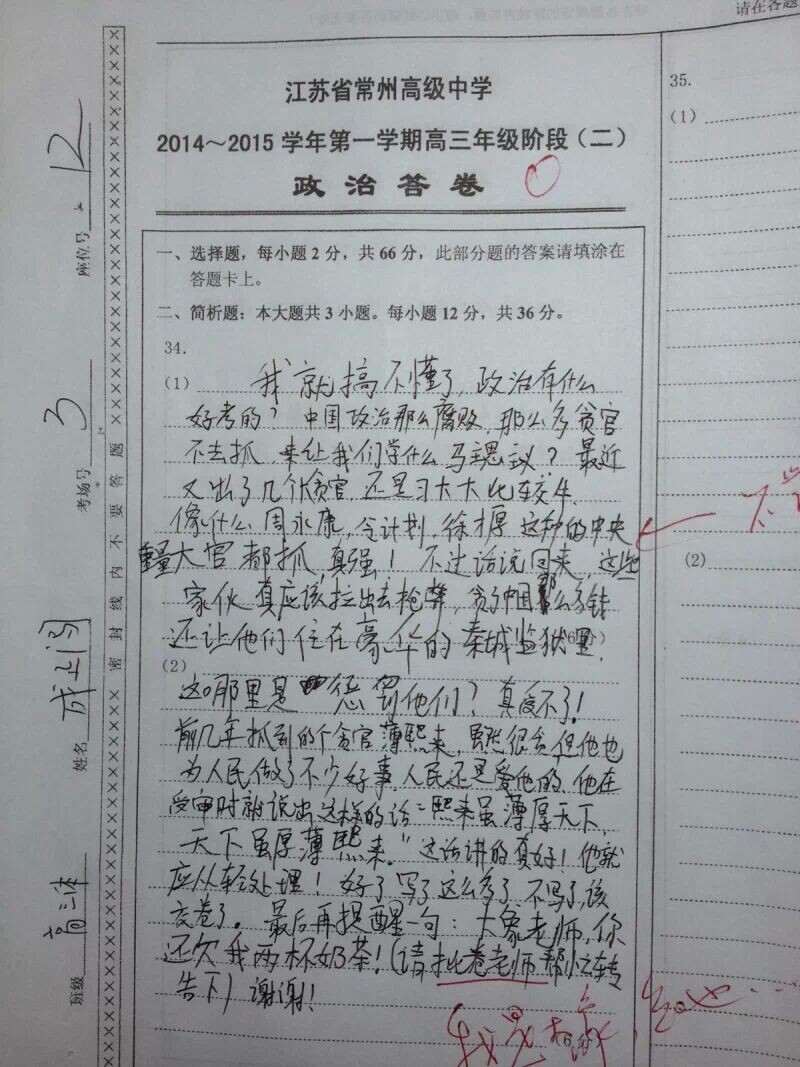 请在各题
江苏省常州高级中学
2014～2015 学年第一学期高三年级阶段（二）
政治答卷
0
一、选择题，每小题 2 分，共 66 分，此部分题的答案请填涂在
答题卡上。
二、简析题：本大题共 3 小题。每小题 12 分，共 36 分。
34.
（1） 我就搞不懂了，政治有什么
好考的？中国政治那么腐败，那么多贪官
不去抓，来让我们学什么马思议？最近
又出了几个贪官，还是习大大比较牛
像什么周永康，令计划，徐才厚这种的中央
重量大官都抓，真强！不过话说回来，这些
家伙真应该拉出去枪毙，贪了中国那么多钱
还让他们住在豪华的秦城监狱里，
（2）
这哪里是惩罚他们？真受不了！
前几年抓到的个贪官薄熙来，虽然很贪但他也
为人民做了不少好事，人民还是爱他的，他在
受审时就说出这样的话：“熙来虽薄厚天下，
天下虽厚薄熙来。”这话讲的真好！他就
应从轻处理！好了写了这么多了，不写了，该
交卷了。最后再提醒一句：大象老师，你
还欠我两杯奶茶！（请批卷老师帮忙转
告下）谢谢！
35.
（1）
（2）
座位号 12
考场号 3
姓名
班级 高三
密封线内不要答题